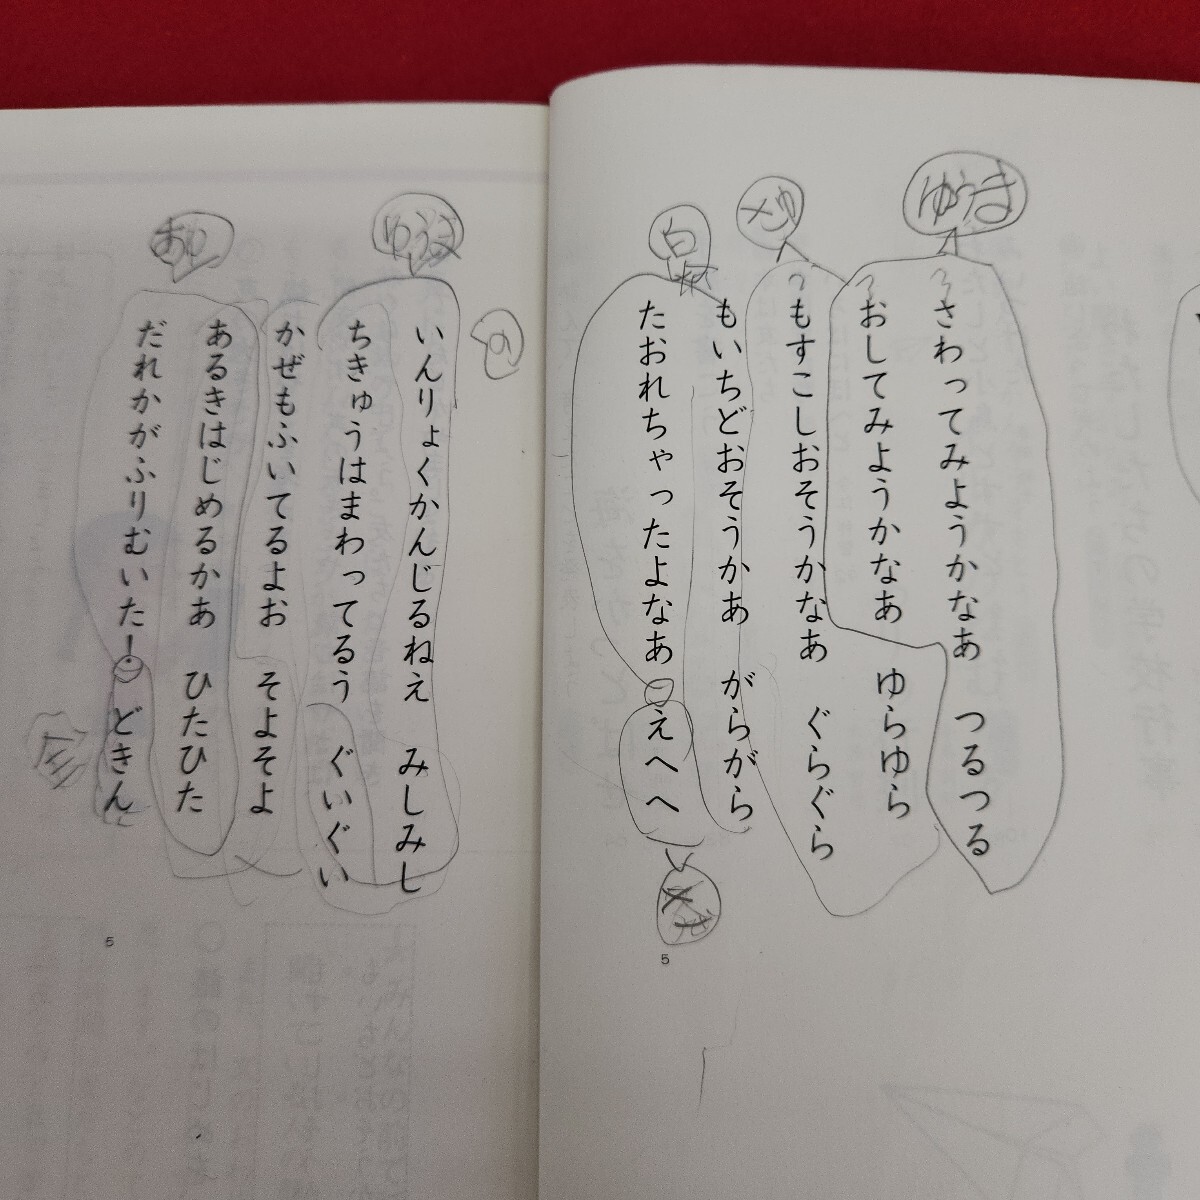 ゆうま
さわってみようかなあ　つるつる
おしてみようかなあ　ゆらゆら
もすこしおそうかなあ　ぐらぐら
もいちどおそうかあ　がらがら
たおれちゃったよなあ　えへへ
5
の
ゆうま
いんりょくかんじるねえ　みしみし
ちきゅうはまわってるう　ぐいぐい
かぜもふいてるよお　そよそよ
あるきはじめるかあ　ひたひた
だれかがふりむいた！　どきん
5